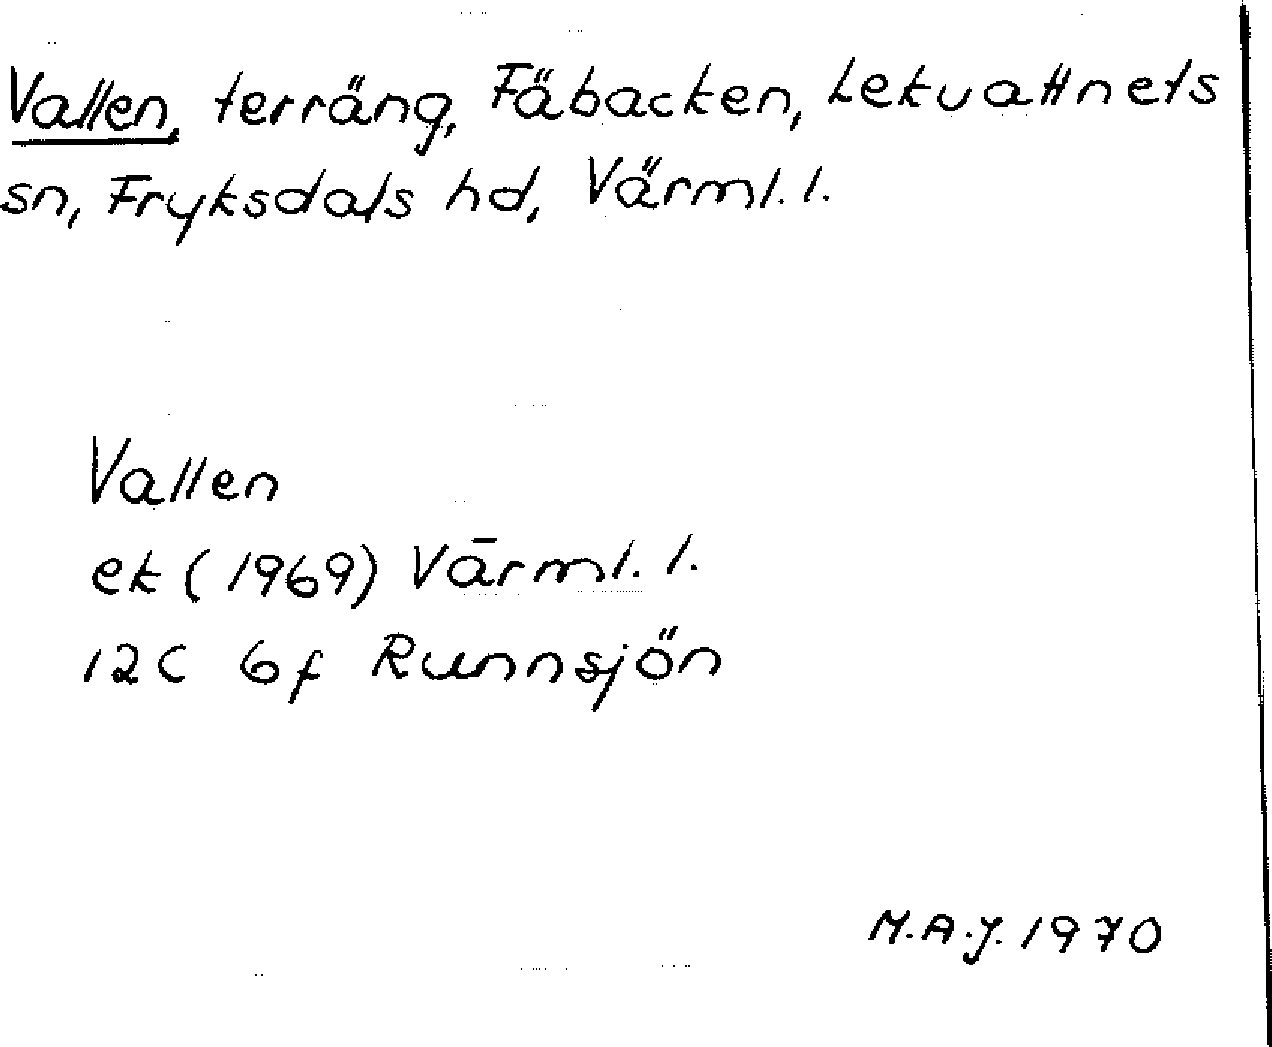 Vallen, terräng, Fäbacken, Lekvattnets
sn, Fryksdals hd, Värml. l.
Vallen
ek (1969) Värml. l.
12C 6f Runnsjön
M.A.J. 1970